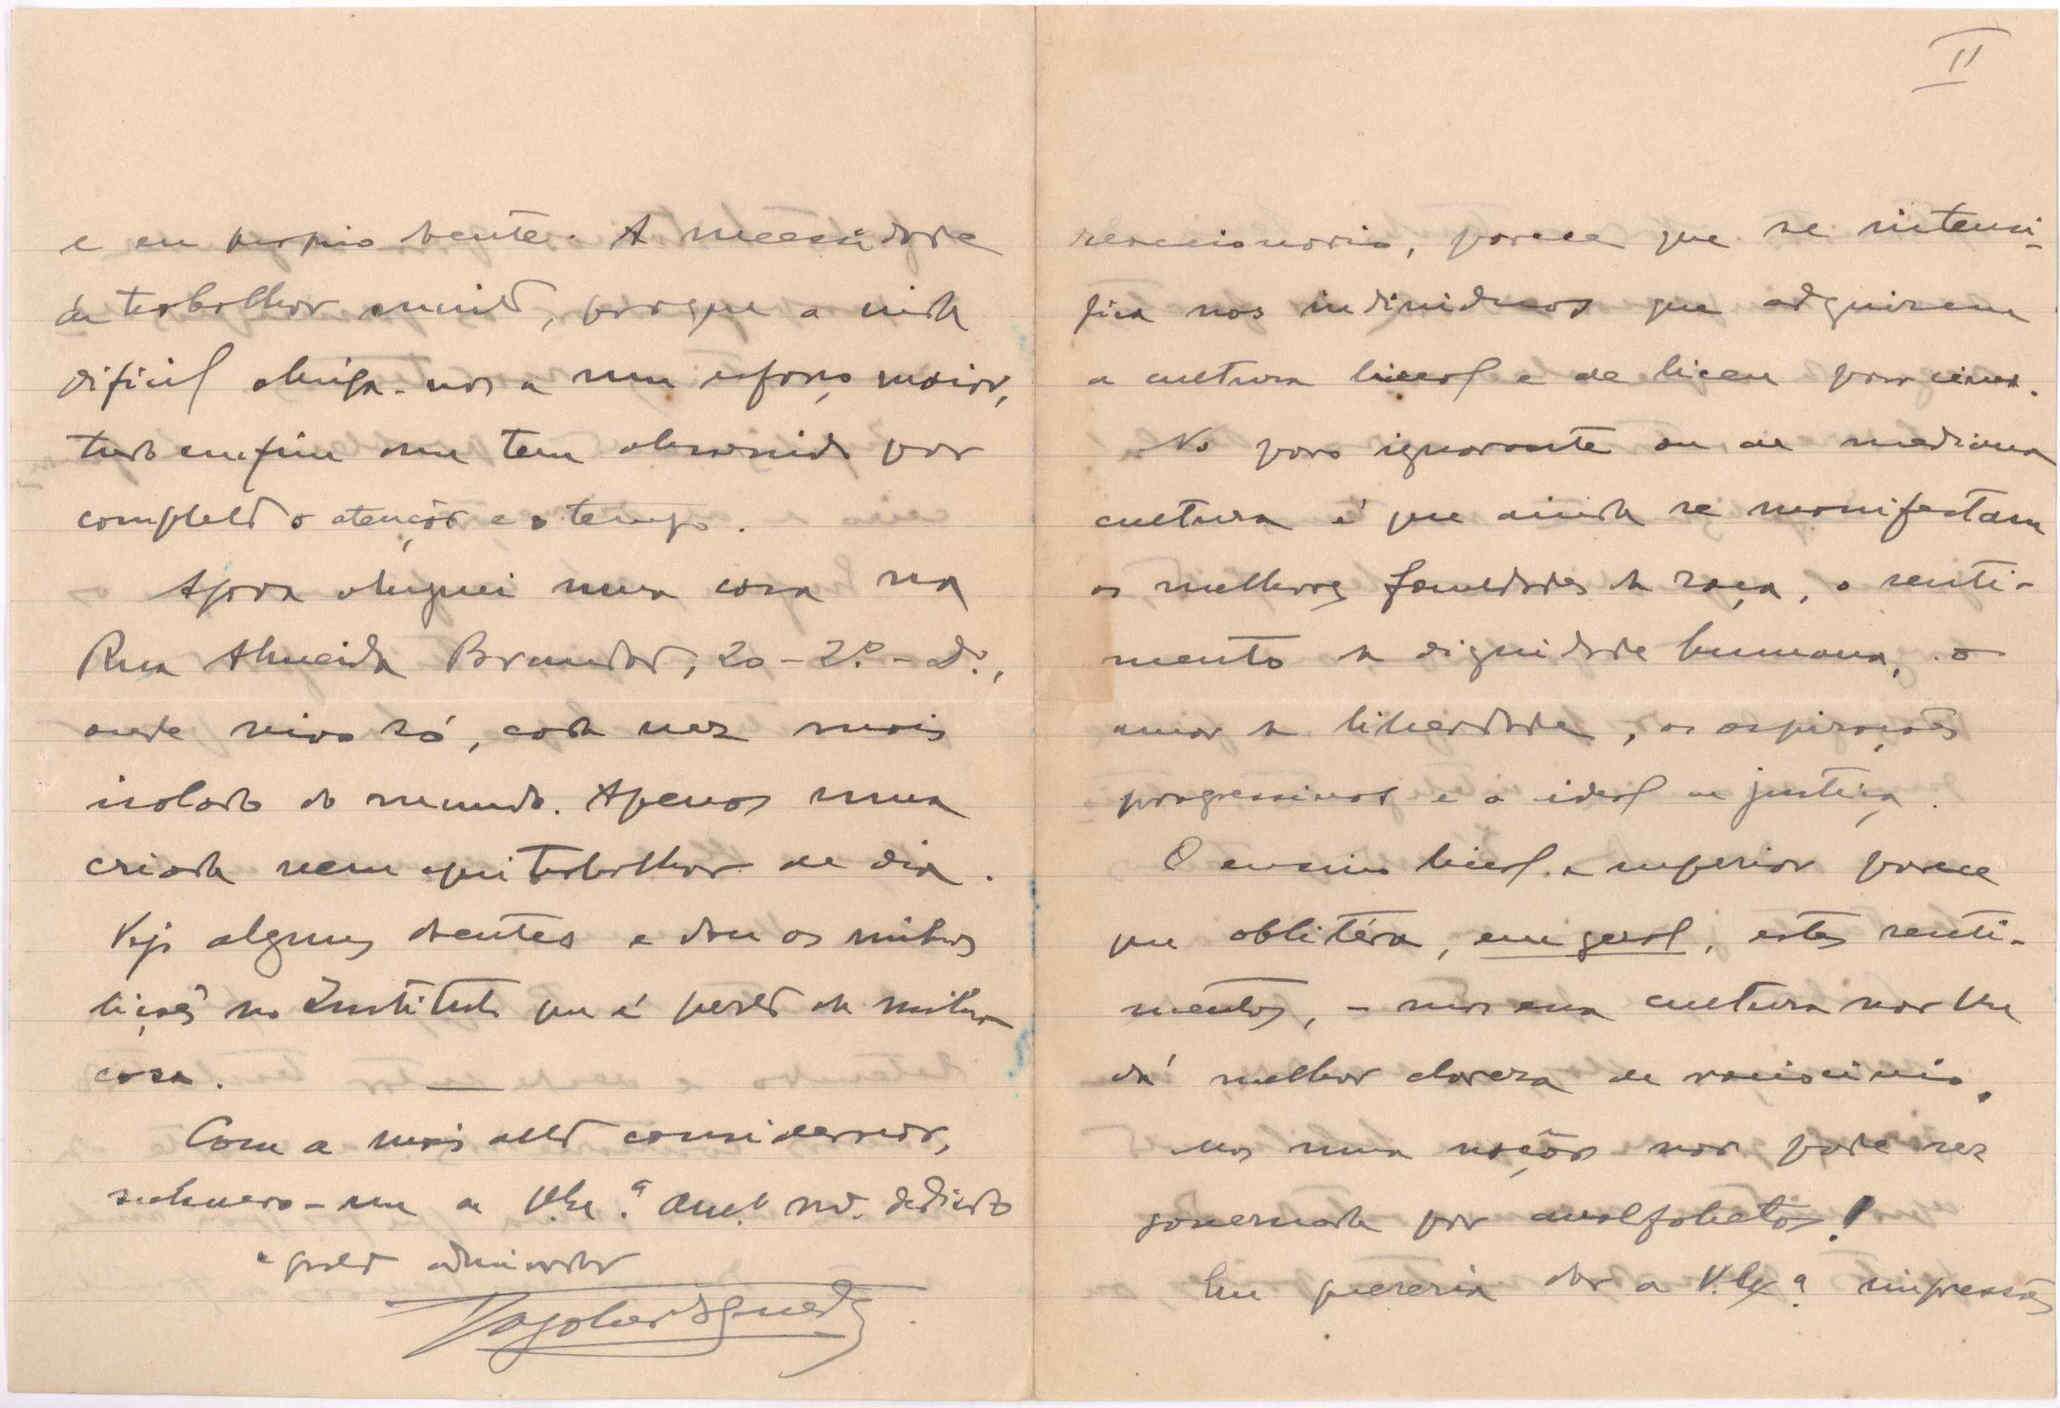 e eu proprio doente. A necessidade
de trabalhar muito, porque a vida
dificil obriga-nos a um esforço maior,
tudo emfim me tem absorvido por
completo a atenção e o tempo.
Agora aluguei uma casa na
Rua Almeida Brandão, 20-2.º-D.º,
onde vivo só, cada vez mais
isolado do mundo. Apenas uma
criada vem aqui trabalhar de dia.
Vejo alguns doentes e dou as minhas
lições no Instituto que é perto da minha
casa. —
Com a mais alta consideração,
subscrevo-me de V. Ex.ª am.º m.to dedicado
e grato admirador
II
reaccionario, parece que se intensi-
fica nos individuos que adquirem
a cultura liceal e de liceu para cima.
No povo ignorante ou de mediana
cultura é que ainda se manifestam
as melhores faculdades da raça, o senti-
mento da dignidade humana, o
amor da liberdade, as aspirações
progressivas e o ideal de justiça.
O ensino liceal e superior parece
que oblitéra, em geral, estes senti-
mentos, - mas essa cultura não lhe
dá melhor clareza de raciocinio.
Mas uma nação não pode ser
governada por analfabetos!
Eu quereria dar a V. Ex.ª impressões